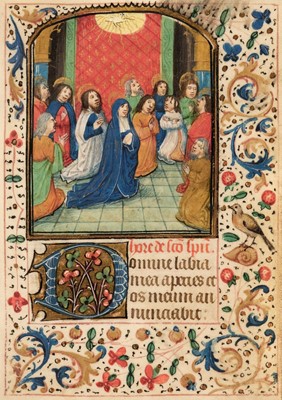 hore de sco spir
Domine labia
mea aperies et
os meum an
nunciabit: